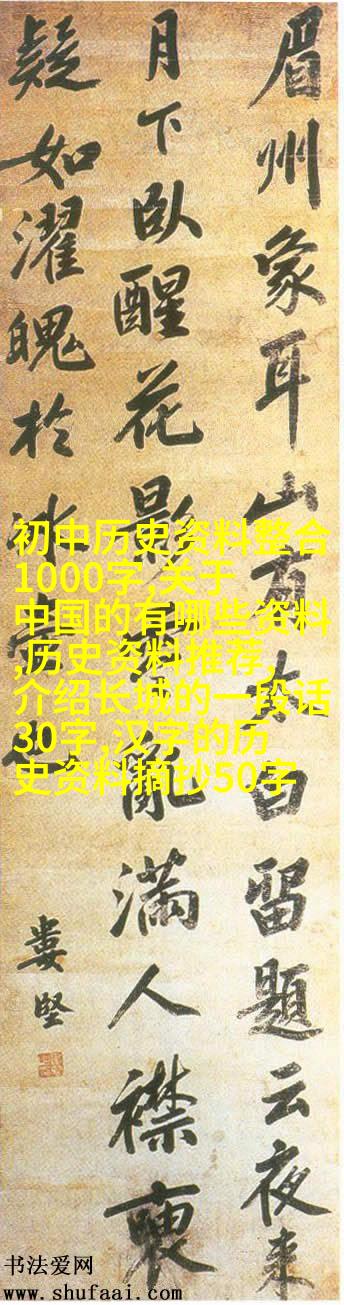 眉州象耳山有太白留題云夜来
月下臥醒花影亂滿人襟
疑如濯魄於冰
婁堅
初中历史资料整合
1000字,关于
中国的有哪些资料
,历史资料推荐,
介绍长城的一段话
30字,汉字的历
史资料摘抄50字
书法爱网
www.shufaai.com